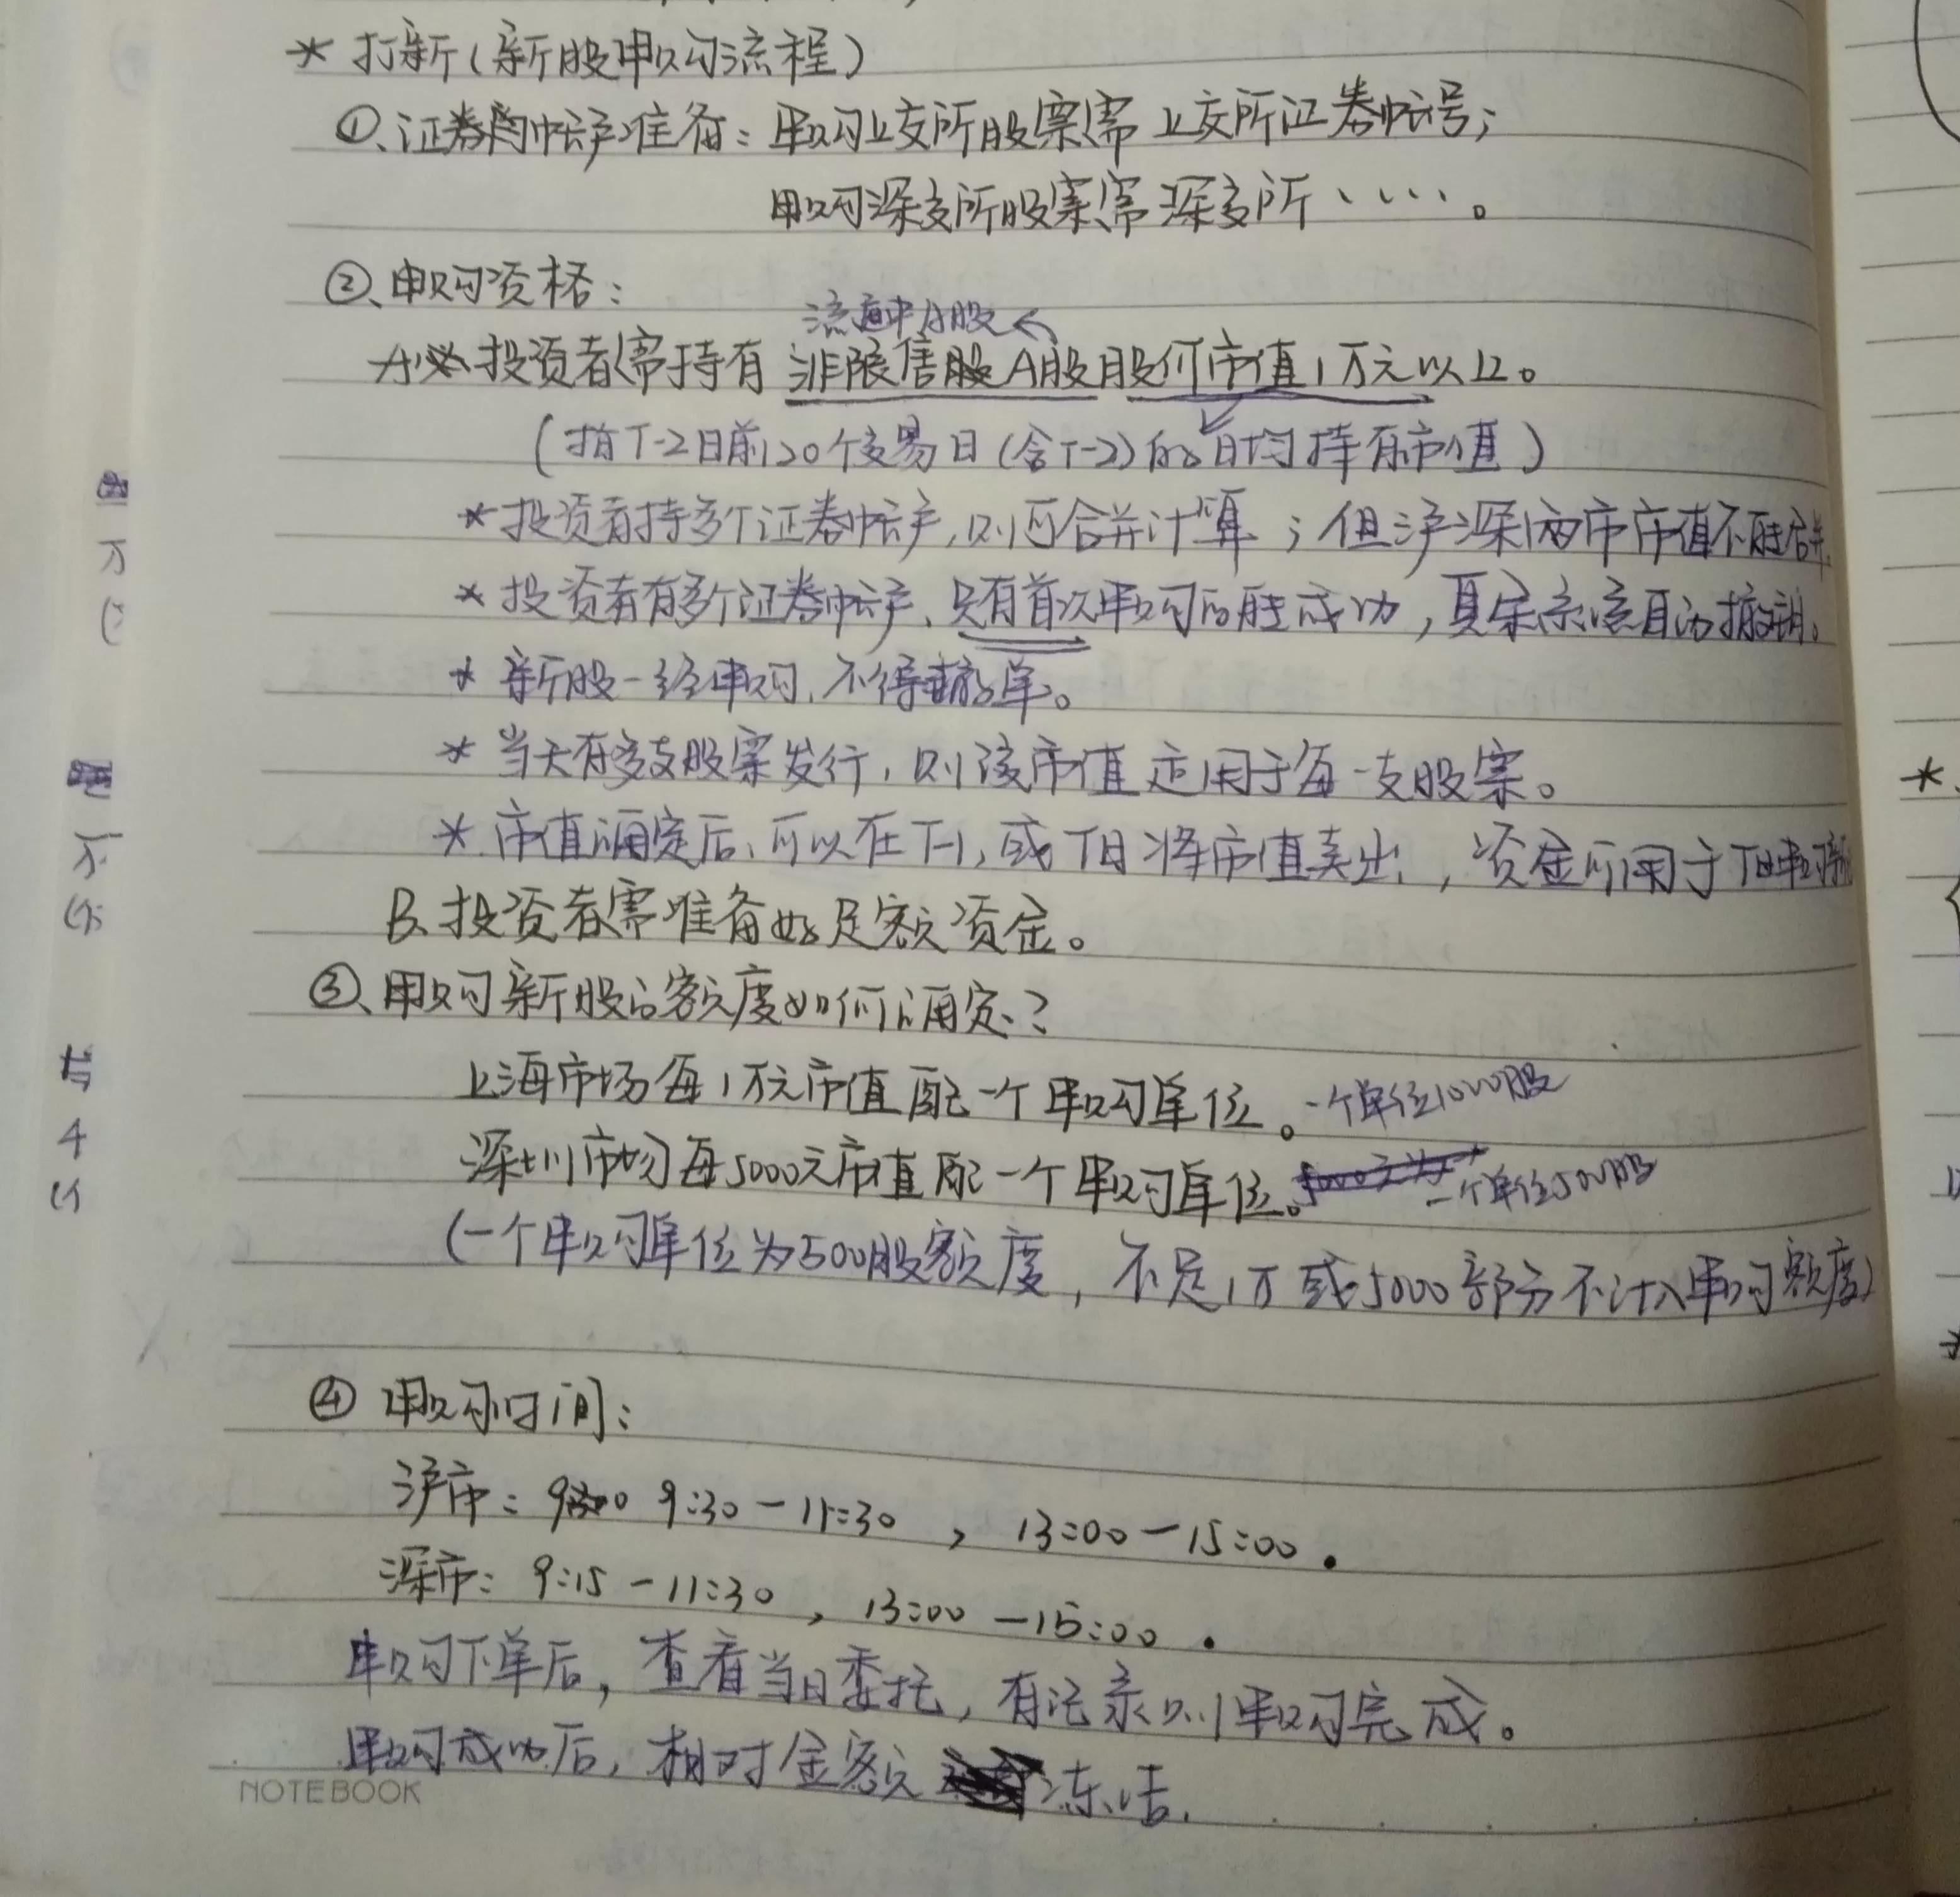 * 打新(新股申购流程)
①、证券帐户准备:申购上交所股票需上交所证券帐号;
申购深交所股票需深交所、、…。
②、申购资格:
流通中A股
A、投资者需持有非限售股A股股份市值1万元以上。
(指T-2日前20个交易日(含T-2)的日均持有市值)
*投资者持多个证券帐户,则可合并计算;但沪深两市市值不能合并.
*投资者有多个证券帐户、只有首次申购可能成功,其余系统自动撤销。
*新股一经申购,不得撤单。
*当天有多支股票发行,则该市值适用于每一支股票。
*市值确定后,可以在T-1,或T日将市值卖出,资金可用于T日申购新
B、投资者需准备好足额资金。
③、申购新股的额度如何确定?
上海市场每1万元市值配一个申购单位。一个单位1000股
深圳市场每5000元市值配一个申购单位。一个单位500股
(一个申购单位为500股额度,不足1万或5000部分不计入申购额度)
④ 申购时间:
沪市:9:30-11:30,13:00-15:00.
深市:9:15-11:30,13:00-15:00.
申购下单后,查看当日委托,有记录则申购完成。
申购成功后,相对金额冻结.
NOTEBOOK